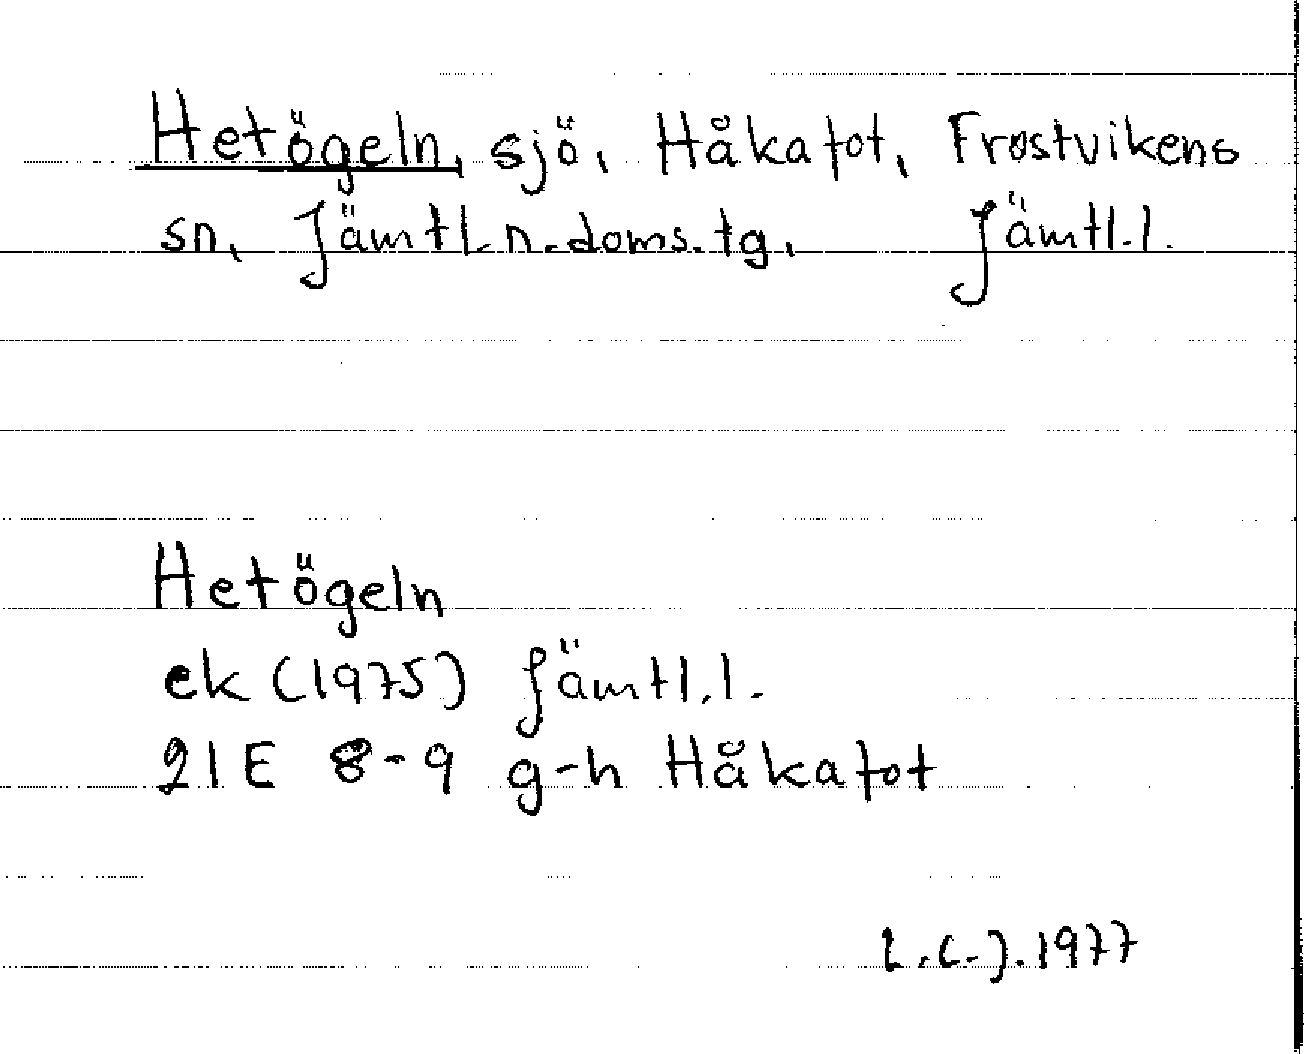 Hetögeln, sjö, Håkafot, Frostvikens
sn, Jämtl. n. doms. tg, Jämtl. l.
Hetögeln
ek (1975) Jämtl. l.
21E 8-9 g-h Håkafot
L.C.J. 1977